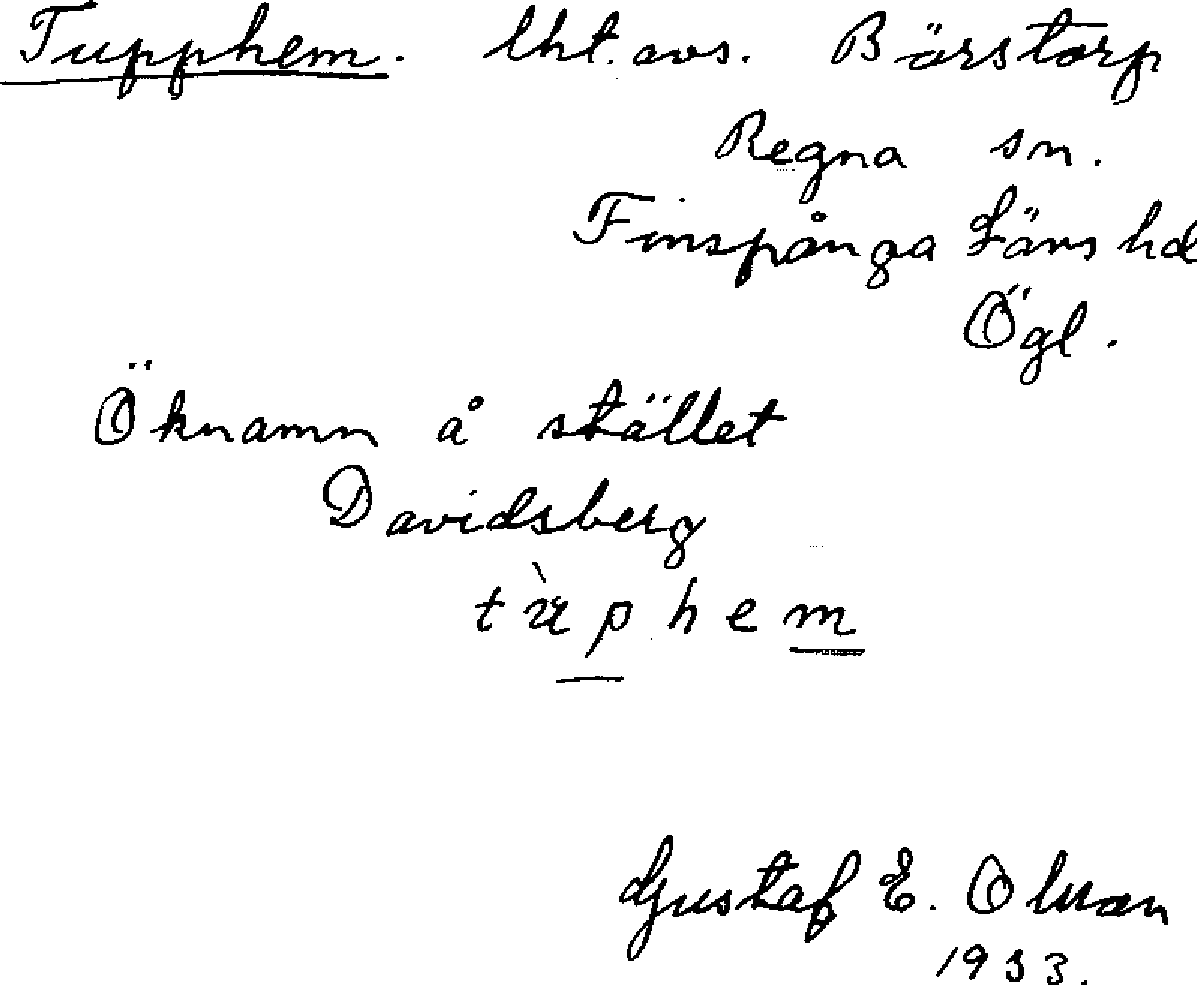 Tupphem. lht. avs. Börstorp
Regna sn.
Finspånga Läns hd
Ögl.
Öknamn å stället
Davidsberg
Gustaf E.
1933.